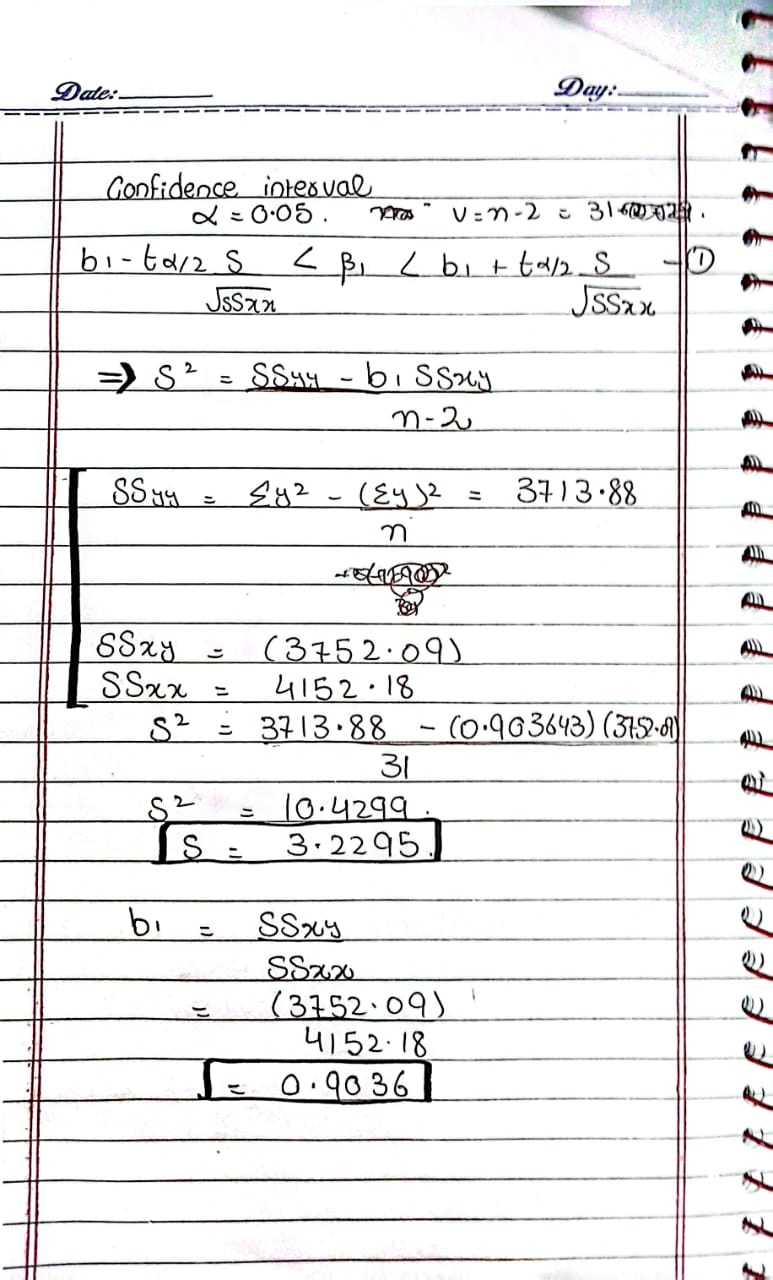 Date:
Day:
Confidence interval
α = 0.05. v = n-2 = 31
b1 - tα/2 S/√SSxx < β1 < b1 + tα/2 S/√SSxx - ①
⇒ S² = SSyy - b1 SSxy
n-2
SSyy = Σy² - (Σy)² = 3713.88
n
SSxy = (3752.09)
SSxx = 4152.18
S² = 3713.88 - (0.903643)(3752.09)
31
S² = 10.4299.
S = 3.2295.
b1 = SSxy
SSxx
= (3752.09)
4152.18
= 0.9036